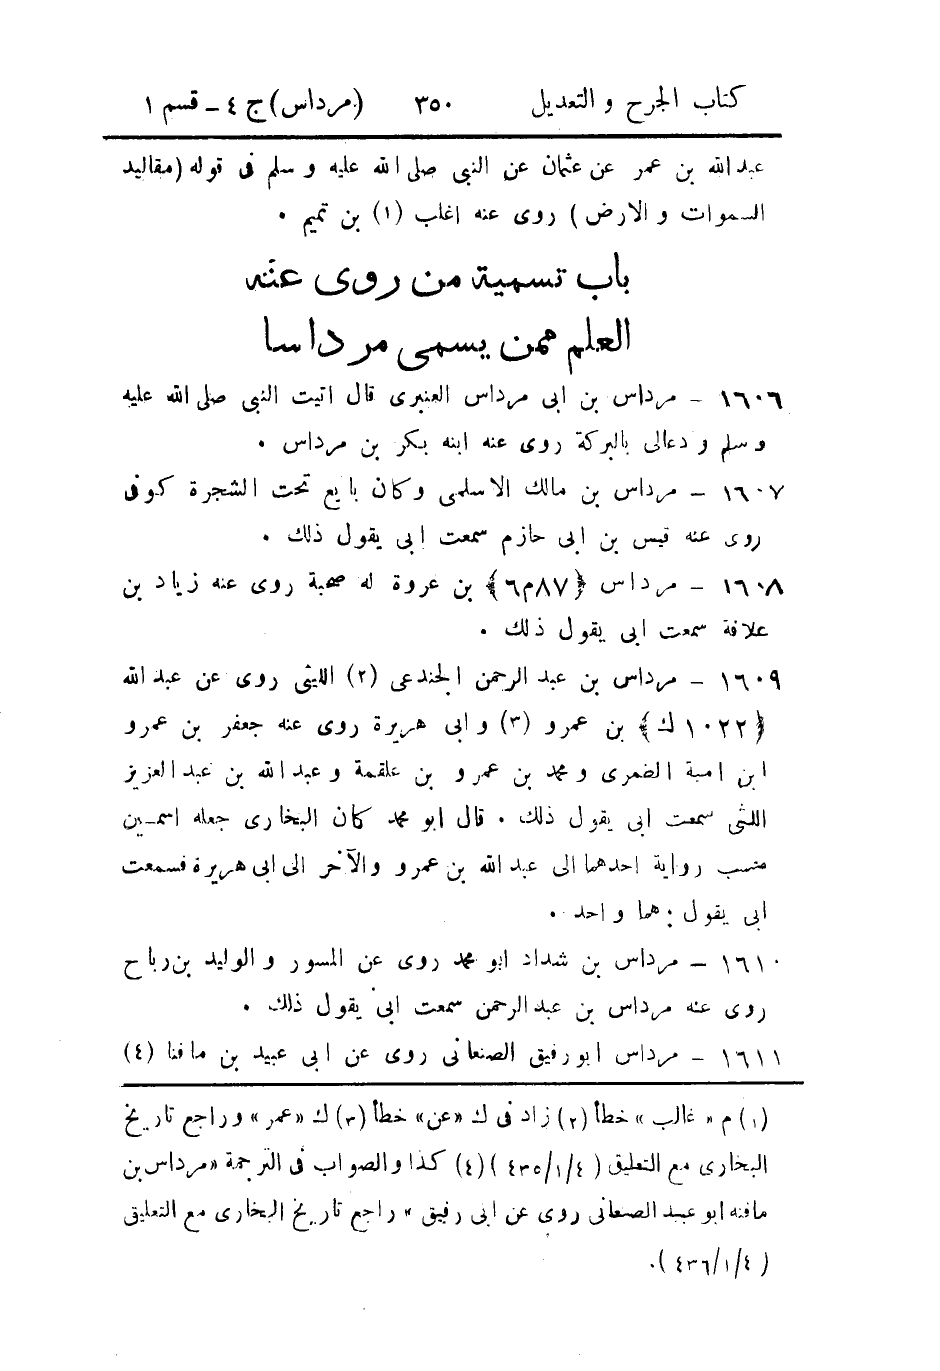 كتاب الجرح والتعديل ٣٥٠ (مرداس) ج ٤ - قسم ١
عبد الله بن عمر عن عثمان عن النبي صلى الله عليه و سلم فى قوله (مقاليد
السموات و الارض) روى عنه اغلب (١) بن تميم .
باب تسمية من روى عنه
العلم ممن يسمى مرداسا
١٦٠٦ - مرداس بن ابى مرداس العنبرى قال اتيت النبي صلى الله عليه
و سلم و دعالى بالبركة روى عنه ابنه بكر بن مرداس .
١٦٠٧ - مرداس بن مالك الاسلمى وكان بايع تحت الشجرة كوفى
روى عنه قيس بن ابى حازم سمعت ابى يقول ذلك .
١٦٠٨ - مرداس {٨٧م٦} بن عروة له صحبة روى عنه زياد بن
علاقة سمعت ابى يقول ذلك .
١٦٠٩ - مرداس بن عبد الرحمن الجندعى (٢) الليثى روى عن عبد الله
{١٠٢٢ ك} بن عمرو (٣) و ابى هريرة روى عنه جعفر بن عمرو
ابن امية الضمرى و محمد بن عمرو بن علقمة و عبد الله بن عبد العزيز
الليثى سمعت ابى يقول ذلك . قال ابو محمد كان البخارى جعله اسمين
منسب رواية احدهما الى عبد الله بن عمرو والآخر الى ابى هريرة فسمعت
ابى يقول : هما واحد .
١٦١٠ - مرداس بن شداد ابو محمد روى عن المسور و الوليد بن رباح
روى عنه مرداس بن عبد الرحمن سمعت ابى يقول ذلك .
١٦١١ - مرداس ابو رفيق الصنعانى روى عن ابى عبيد بن مافنا (٤)
(١) م «غالب» خطأ (٢) زاد فى ك «عن» خطأ (٣) ك «عمر» وراجع تاريخ
البخارى مع التعليق (٤/١/٤٣٥) (٤) كذا والصواب فى الترجمة «مرداس بن
مافنه ابو عبيد الصنعانى روى عن ابى رفيق» راجع تاريخ البخارى مع التعليق
(٤/١/٤٣٦).